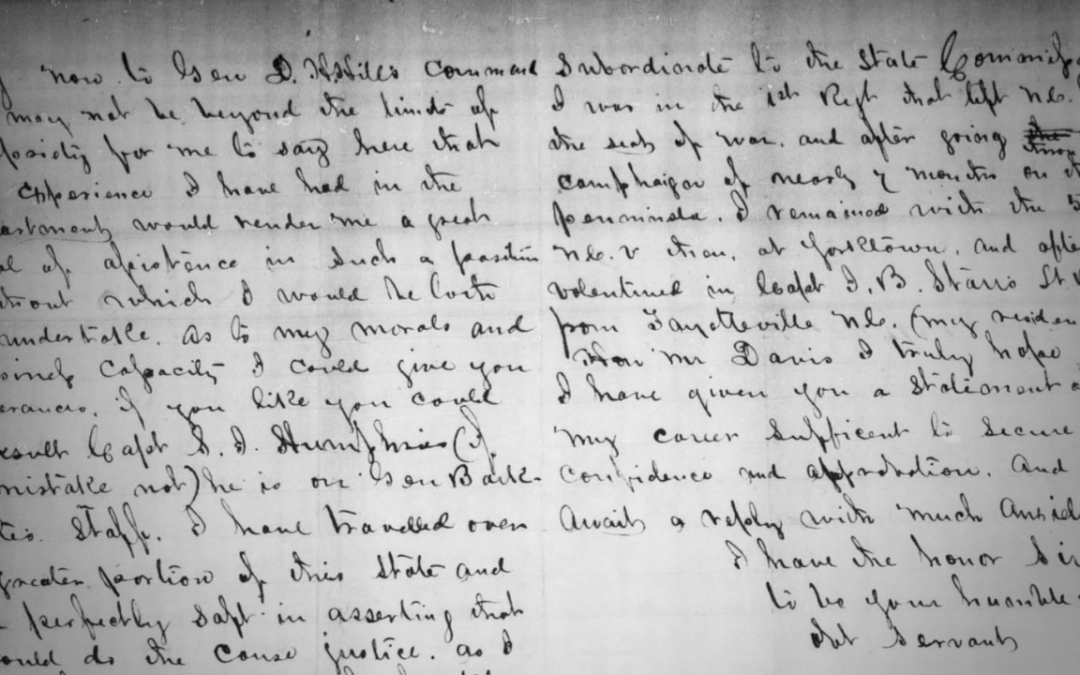 now to Gen D. H Hill's Command
may not be beyond the limits of
for me to say here that
Experience I have had in the
would render me a great
of assistance in such a position
which I would be loth
undertake. as to my morals and
capacity I could give you
if you like you could
Capt
mistake not) he is on Gen
Staff. I have travelled over
greater portion of this State and
perfectly safe in asserting that
do the cause justice. as I
Subordinate to the State
I was in the 1st Regt that left N.C.
the seat of war. and after going
of nearly 7 months on
I remained with the 5
N.C. at Yorktown. and
in Capt J. B. Starr's
from Fayetteville N.C. (my
Now Mr Davis I truly hope
I have given you a Statement
my career Sufficent to Secure
Confidence and approbation. And
Await a reply with much
I have the honor
to be your humble
Obt Servant